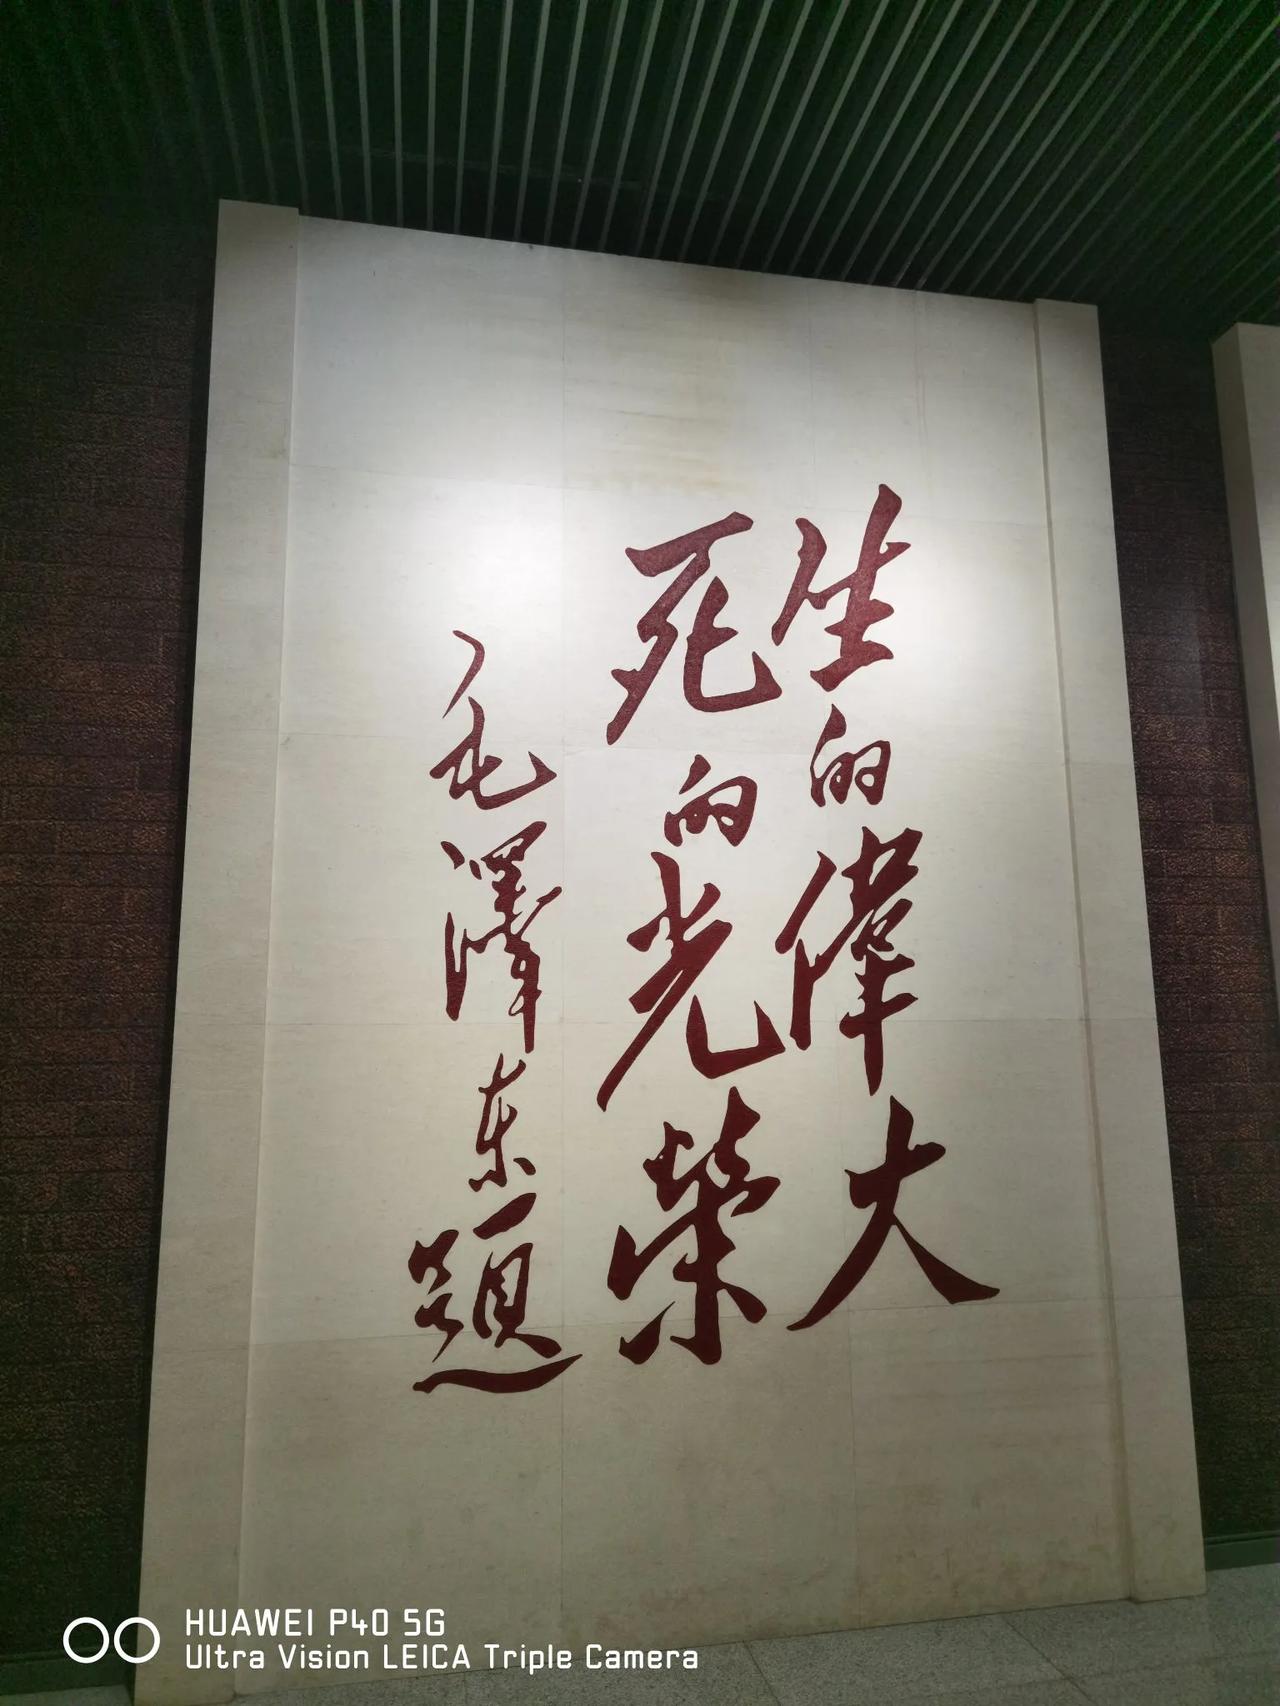 生的偉大
死的光榮
毛澤东题
HUAWEI P40 5G
Ultra Vision LEICA Triple Camera